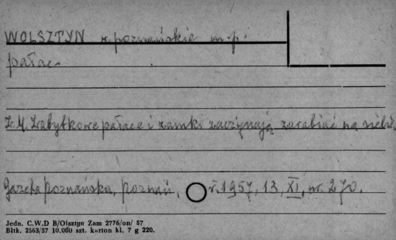 WOLSZTYN w. poznańskie m.p.
pałac
Z.M. Zabytkowe pałace i zamki zaczynają zarabiać na siebie.
Gazeta poznańska, poznań, r. 1957, 13. XI, nr. 270.
Jedn. C.W.D B/Olsztyn Zam 2776/on/ 57
Bltk. 2563/57 10.000 szt. karton kl. 7 g 220.